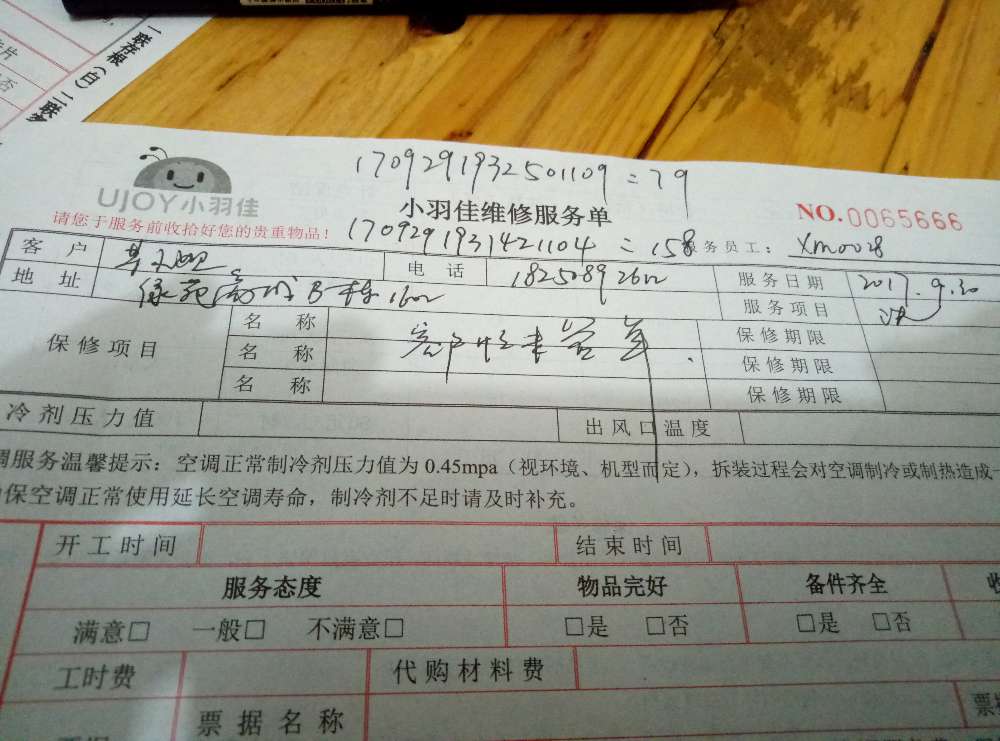 片
否
一联存根(白)二联
1709291932501109=79
UJOY小羽佳
小羽佳维修服务单
NO.0065666
请您于服务前收拾好您的贵重物品!
1709291931421104=158
服务员工: Xm0028
客户
电话 18250892612
服务日期 2017.9.30
地址 B栋1602
服务项目
保修项目
名称
保修期限
名称
保修期限
名称
保修期限
冷剂压力值
出风口温度
调服务温馨提示:空调正常制冷剂压力值为0.45mpa(视环境、机型而定),拆装过程会对空调制冷或制热造成
保空调正常使用延长空调寿命,制冷剂不足时请及时补充。
开工时间
结束时间
服务态度
物品完好
备件齐全
满意□ 一般□ 不满意□
□是 □否
□是 □否
工时费
代购材料费
票据名称